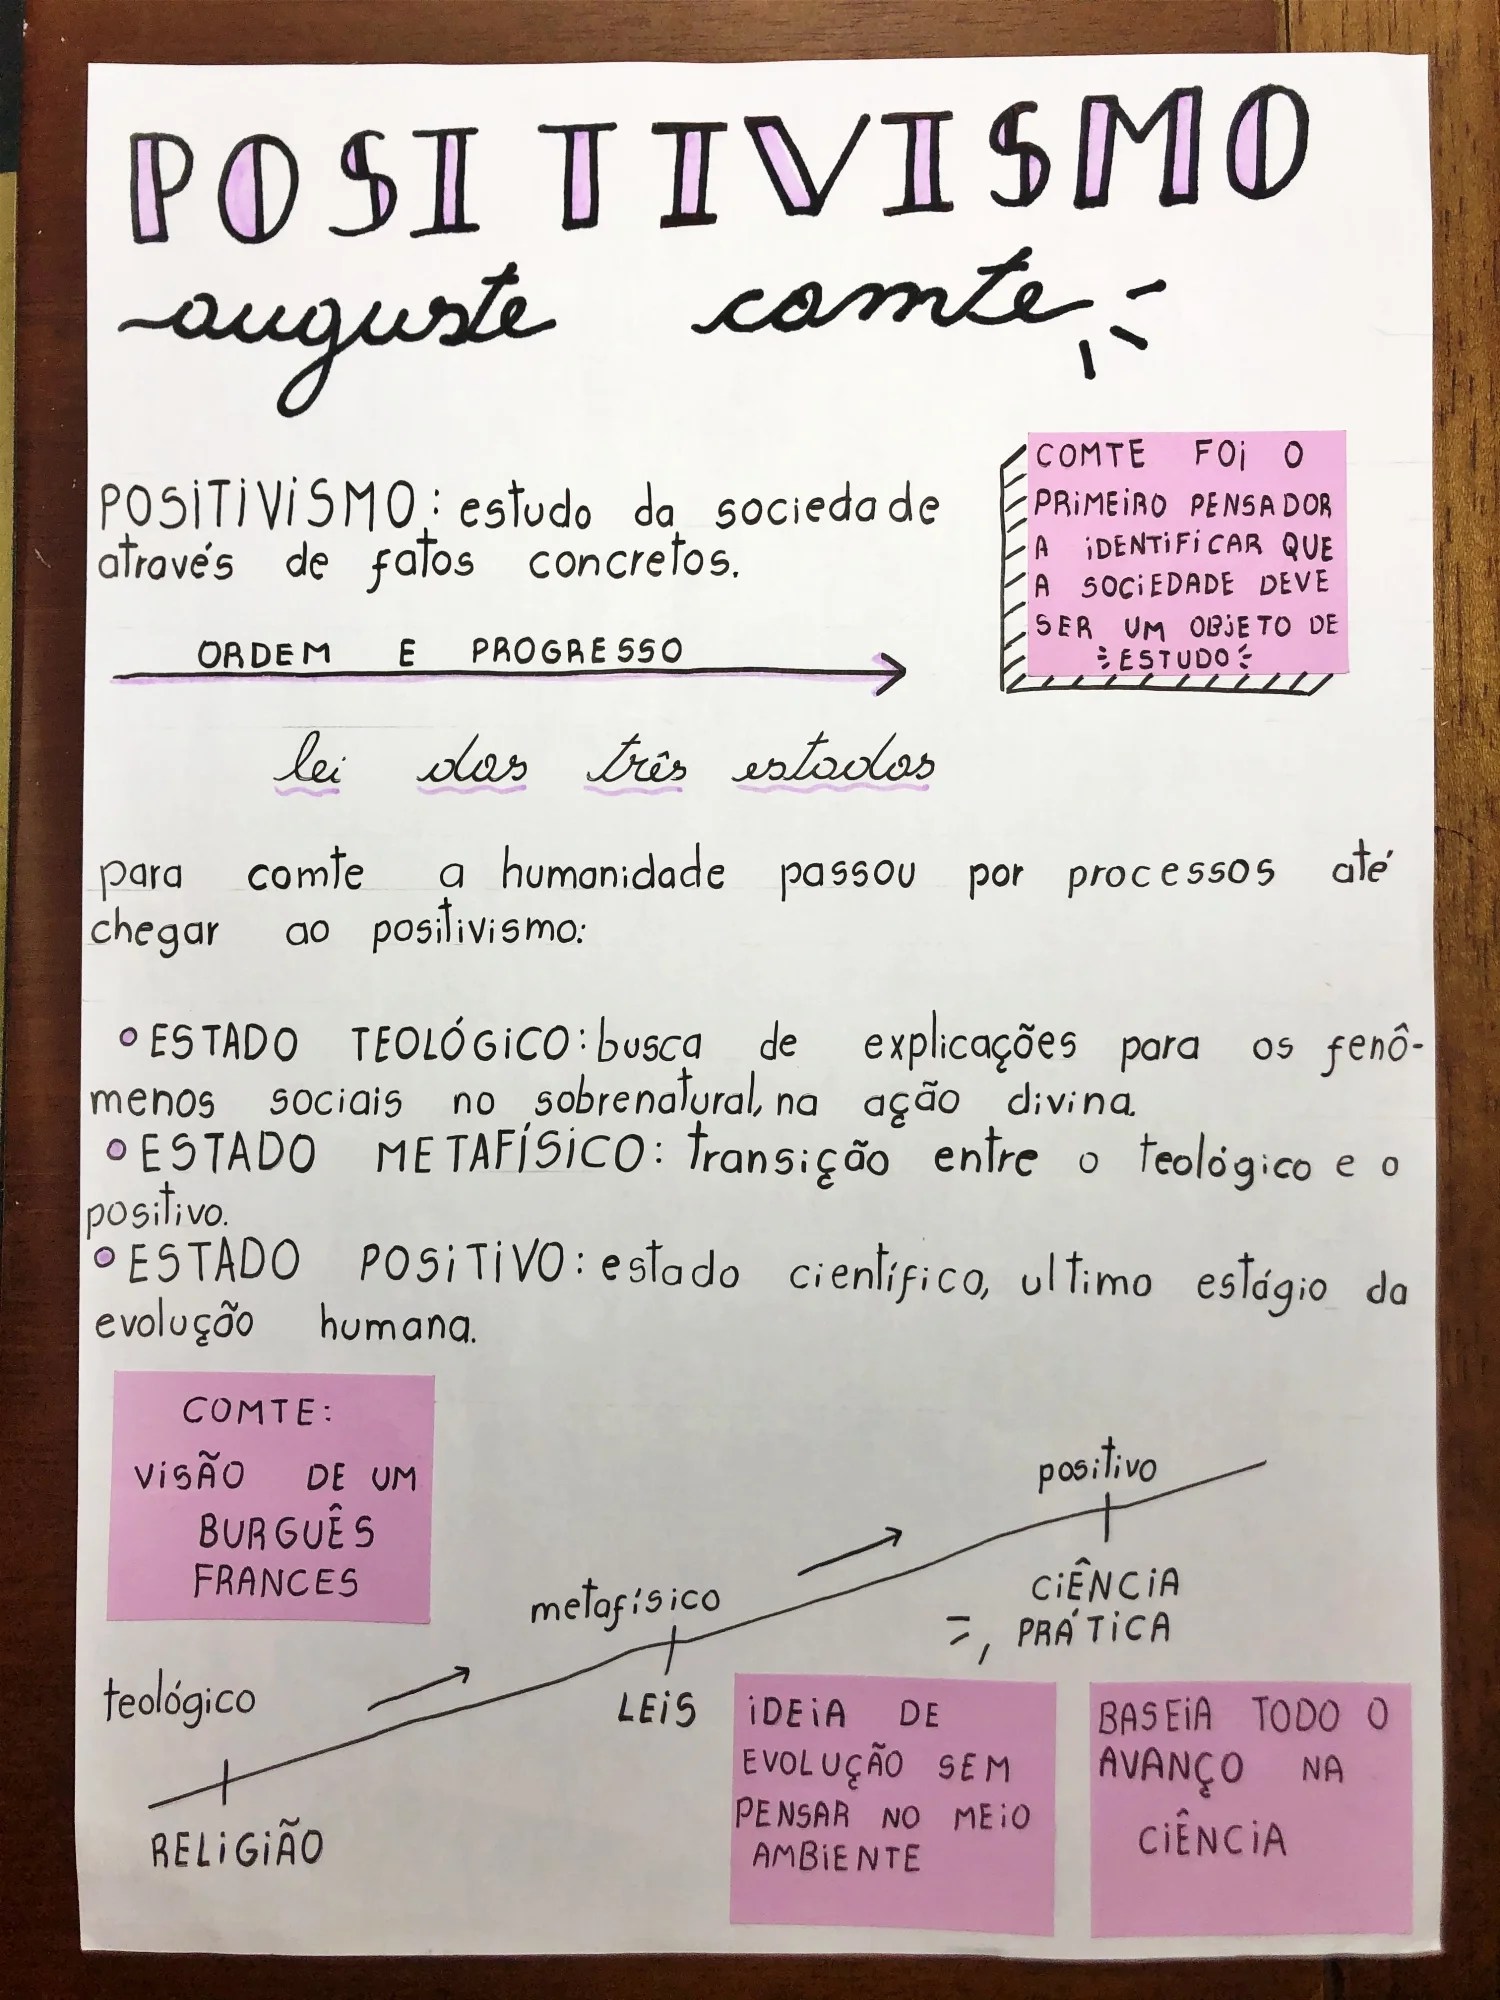 POSITIVISMO
auguste comte
POSITIVISMO: estudo da sociedade
através de fatos concretos.
COMTE FOI O
PRIMEIRO PENSADOR
A IDENTIFICAR QUE
A SOCIEDADE DEVE
SER UM OBJETO DE
ESTUDO
ORDEM E PROGRESSO
lei dos três estados
para comte a humanidade passou por processos até
chegar ao positivismo:
• ESTADO TEOLÓGICO: busca de explicações para os fenô-
menos sociais no sobrenatural, na ação divina.
• ESTADO METAFÍSICO: transição entre o teológico e o
positivo.
• ESTADO POSITIVO: estado científico, ultimo estágio da
evolução humana.
COMTE:
VISÃO DE UM
BURGUÊS
FRANCES
teológico
RELIGIÃO
metafísico
LEIS
positivo
CIÊNCIA
PRÁTICA
IDEIA DE
EVOLUÇÃO SEM
PENSAR NO MEIO
AMBIENTE
BASEIA TODO O
AVANÇO NA
CIÊNCIA